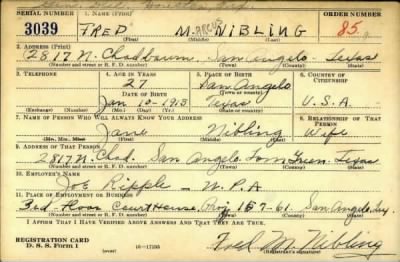 SERIAL NUMBER 1. NAME (Print) ORDER NUMBER
3039 FRED M. NIBLING 85
(First) (Middle) (Last)
2. ADDRESS (Print)
2817 N. Chadbourn San Angelo Texas
(Number and street or R. F. D. number) (Town) (County) (State)
3. TELEPHONE 4. AGE IN YEARS 5. PLACE OF BIRTH 6. COUNTRY OF CITIZENSHIP
27 San Angelo
DATE OF BIRTH (Town or county)
Jan 10-1913 Texas U.S.A.
(Exchange) (Number) (Mo.) (Day) (Yr.) (State or country)
7. NAME OF PERSON WHO WILL ALWAYS KNOW YOUR ADDRESS 8. RELATIONSHIP OF THAT PERSON
Jane Nibling Wife
(Mr., Mrs., Miss) (First) (Middle) (Last)
9. ADDRESS OF THAT PERSON
2817 N. Chad. San Angelo Tom Green Texas
(Number and street or R. F. D. number) (Town) (County) (State)
10. EMPLOYER'S NAME
Joe Ripple - W.P.A
11. PLACE OF EMPLOYMENT OR BUSINESS
3rd Floor Court House, Proj 157-61 San Angelo, Tex.
(Number and street or R. F. D. number) (Town) (County) (State)
I AFFIRM THAT I HAVE VERIFIED ABOVE ANSWERS AND THAT THEY ARE TRUE.
REGISTRATION CARD
D. S. S. Form 1 16-17105 Fred M. Nibling
(Registrant's signature)